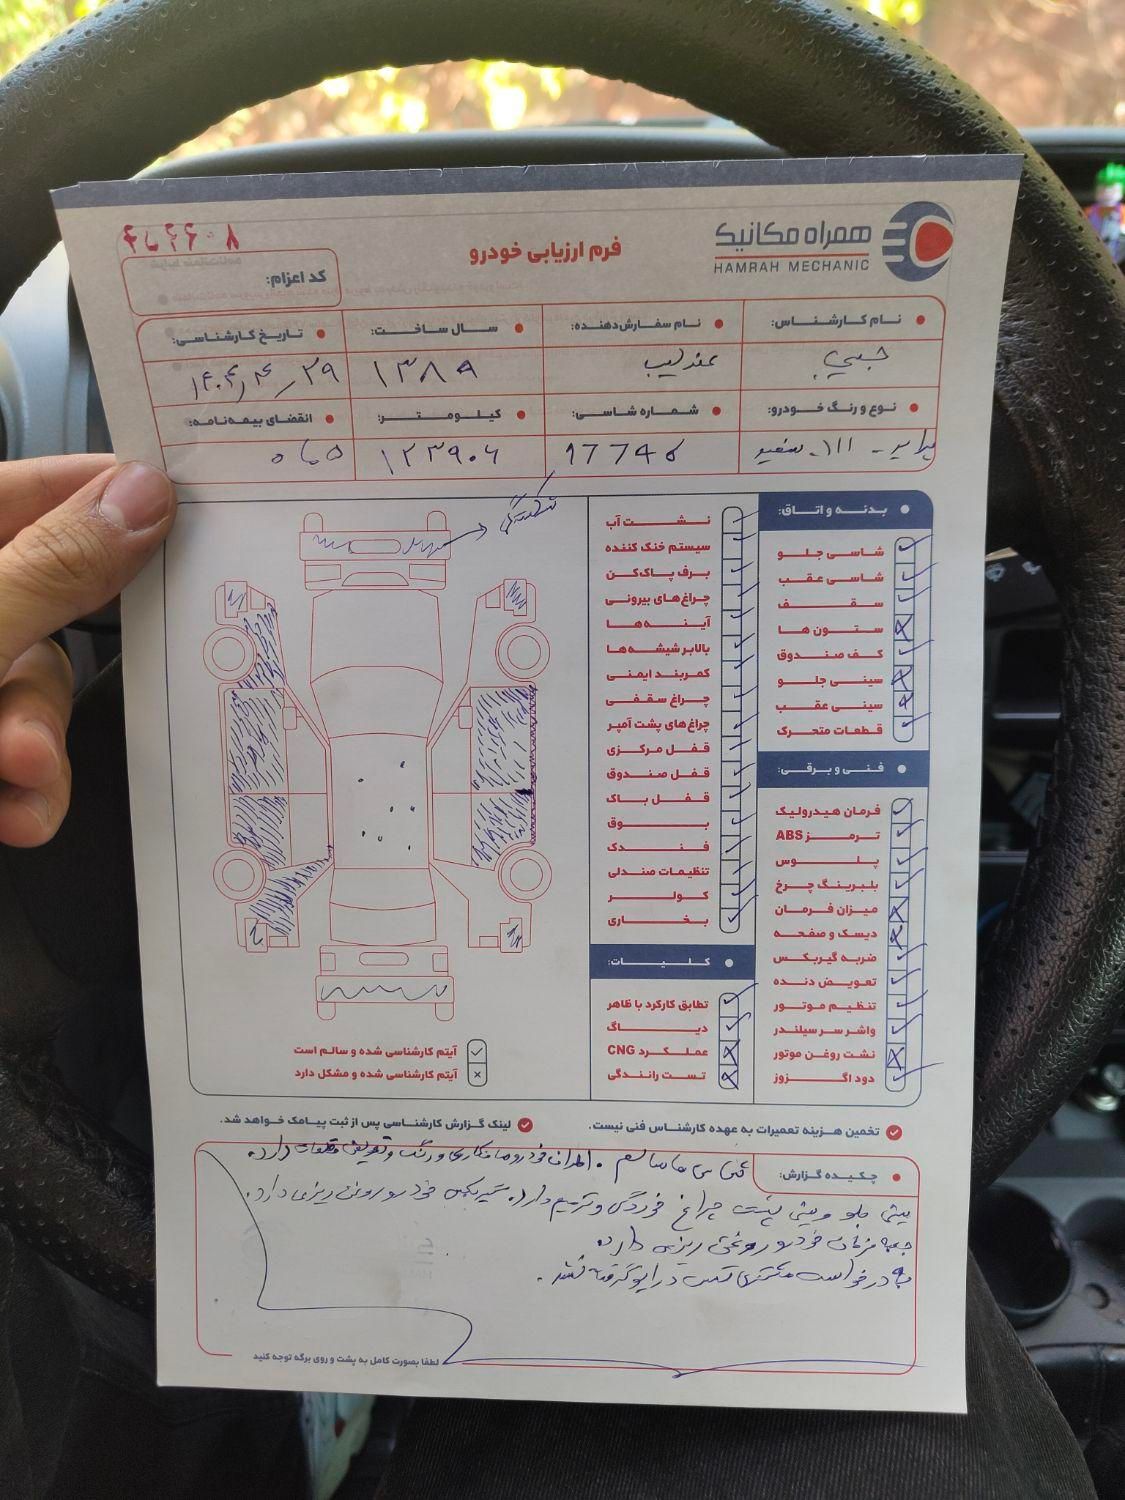 همراه مکانیک
HAMRAH MECHANIC
فرم ارزیابی خودرو
کد اعزام:
نام کارشناس:
نام سفارش‌دهنده:
سال ساخت:
تاریخ کارشناسی:
حبیبی
عندلیب
۱۳۸۹
۱۴۰۴٫۴٫۲۹
نوع و رنگ خودرو:
شماره شاسی:
کیلومتر:
انقضای بیمه‌نامه:
پراید - ۱۱۱ - سفید
۱۲۳۹۰۶
بدنه و اتاق:
شاسی جلو
شاسی عقب
سقف
ستون ها
کف صندوق
سینی جلو
سینی عقب
قطعات متحرک
فنی و برقی:
فرمان هیدرولیک
ترمز ABS
پلوس
بلبرینگ چرخ
میزان فرمان
دیسک و صفحه
ضربه گیربکس
تعویض دنده
تنظیم موتور
واشر سر سیلندر
نشت روغن موتور
دود اگزوز
نشت آب
سیستم خنک کننده
برف پاک‌کن
چراغ‌های بیرونی
آینه ها
بالابر شیشه ها
کمربند ایمنی
چراغ سقفی
چراغ‌های پشت آمپر
قفل مرکزی
قفل صندوق
قفل باک
بوق
فندک
تنظیمات صندلی
کولر
بخاری
کلیات:
تطابق کارکرد با ظاهر
دیاگ
عملکرد CNG
تست رانندگی
شکستگی
آیتم کارشناسی شده و سالم است
آیتم کارشناسی شده و مشکل دارد
تخمین هزینه تعمیرات به عهده کارشناس فنی نیست.
لینک گزارش کارشناسی پس از ثبت پیامک خواهد شد.
چکیده گزارش:
شاسی ها سالم . اطراف خودرو صافکاری و رنگ و تعویض قطعات دارد.
سینی جلو و سینی پشت چراغ خوردگی و ترمیم دارد. گیربکس خودرو روغن ریزی دارد.
جعبه فرمان خودرو روغن ریزی دارد
به درخواست مشتری تست درایو گرفته نشد.
لطفا بصورت کامل به پشت و روی برگه توجه کنید